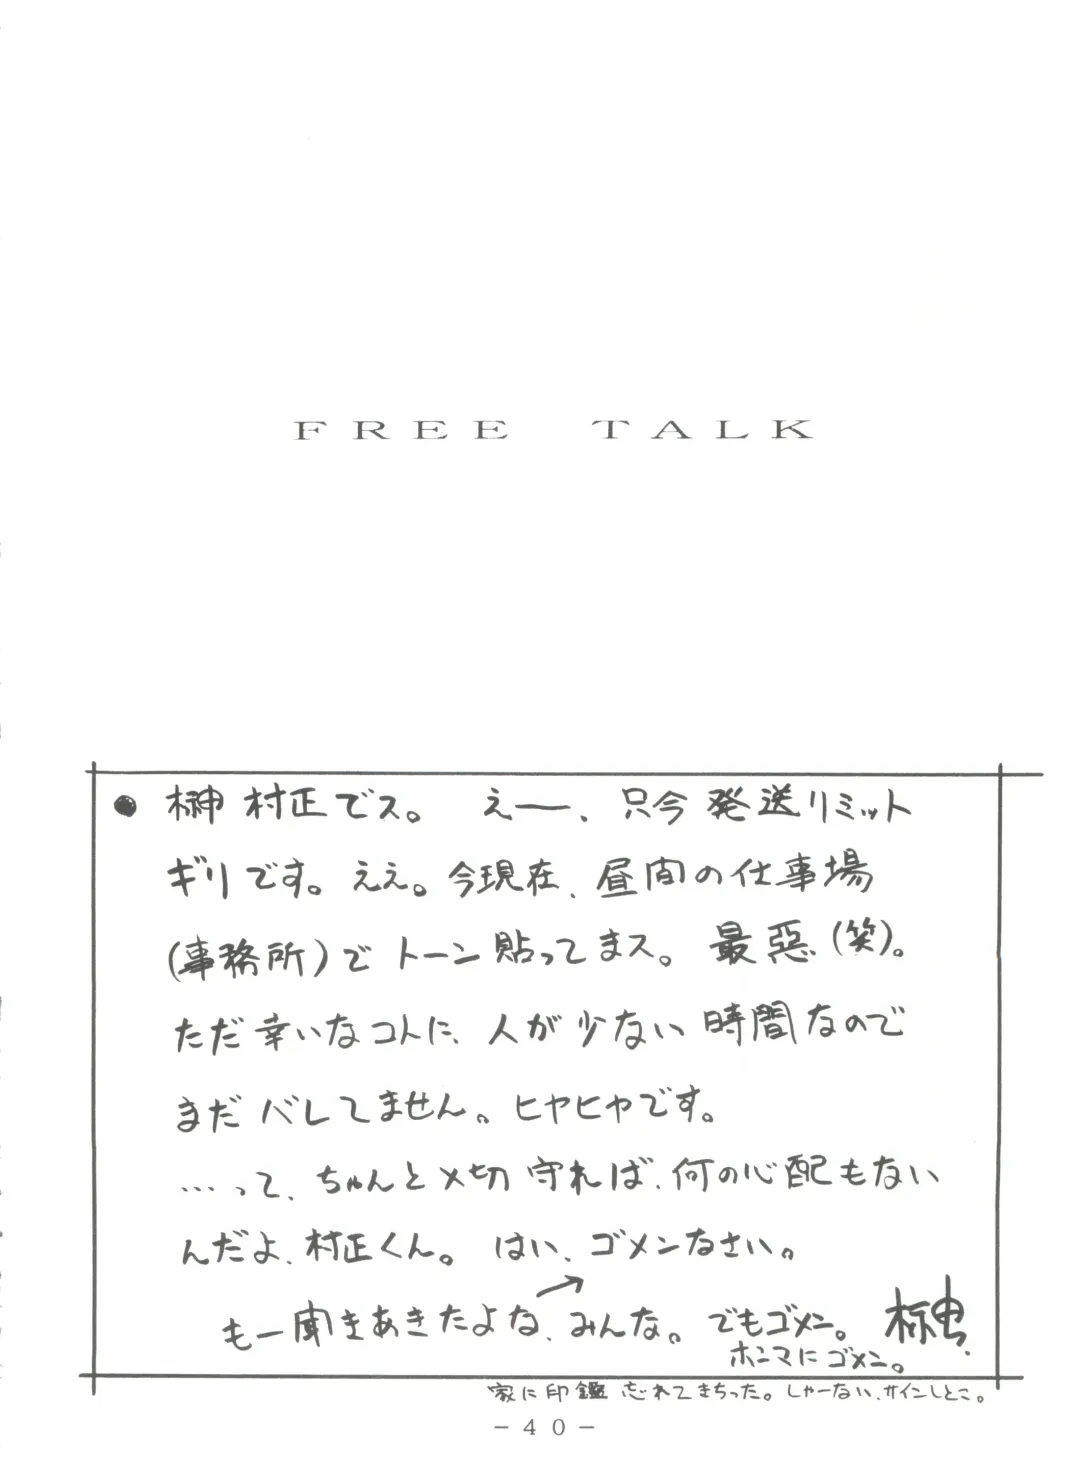 FREE TALK
● 榊 村正でス。 えー、只今 発送リミット
ギリです。ええ。今現在、昼間の仕事場
(事務所)で トーン貼ってまス。 最悪(笑)。
ただ幸いなコトに、人が少ない時間なので
まだバレてません。ヒヤヒヤです。
…って、ちゃんと〆切守れば、何の心配もない
んだよ、村正くん。 はい、ゴメンなさい。
もー聞きあきたよな、みんな。でもゴメン。 榊
ホンマにゴメン。
家に印鑑忘れてきちった。しゃーない、サインしとこ。
- 40 -